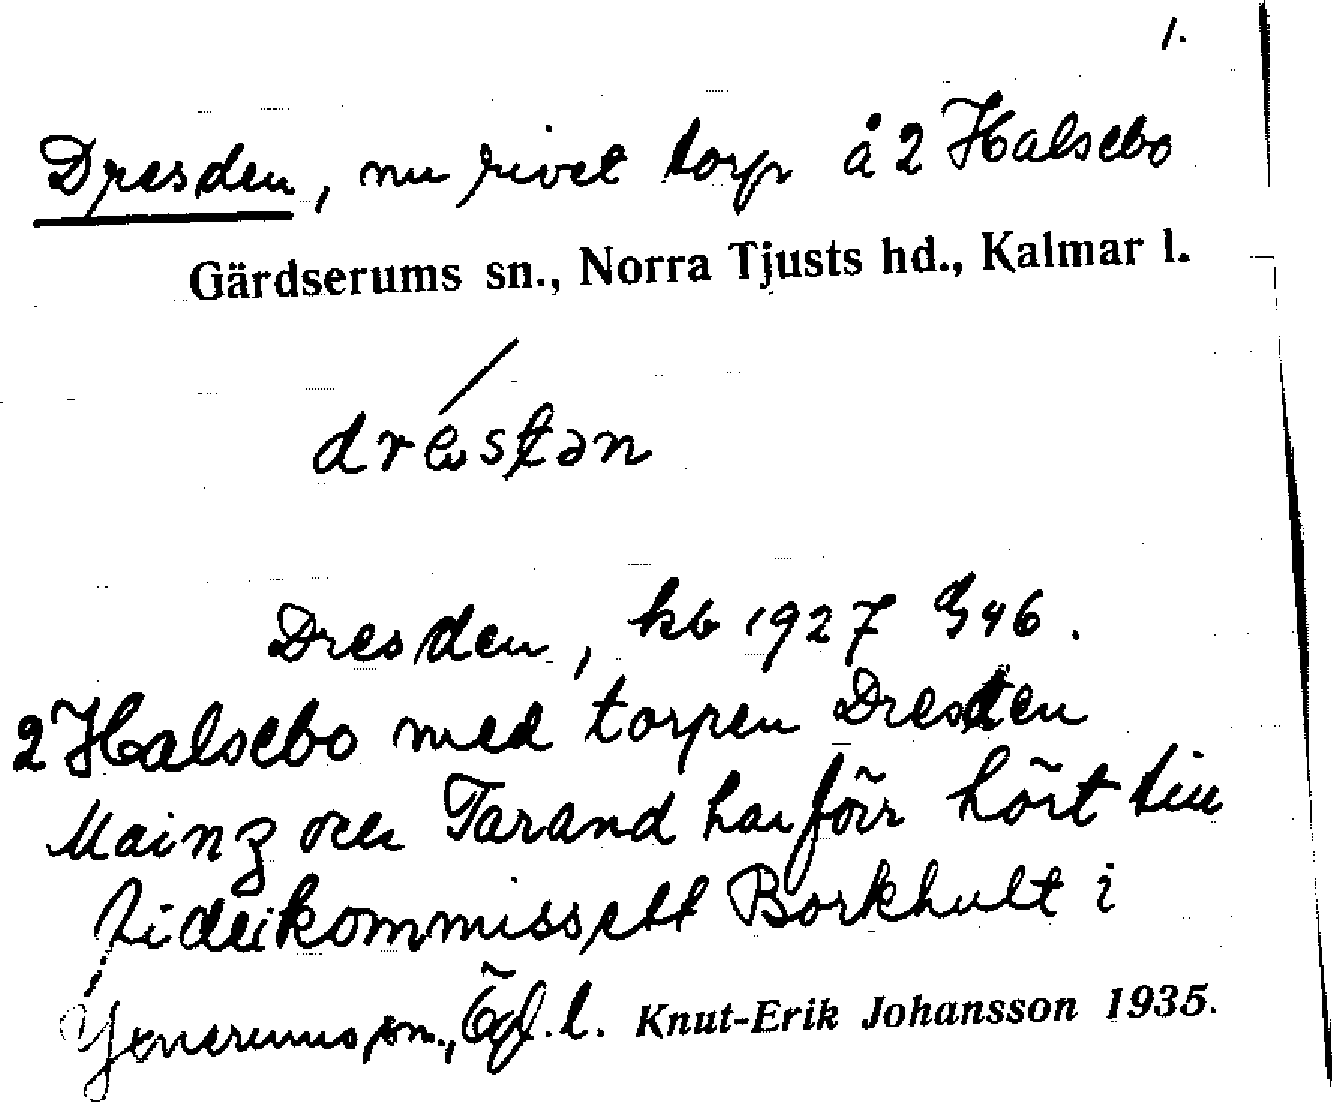 1.
Dresden, nu rivet torp å 2 Halsebo
Gärdserums sn., Norra Tjusts hd., Kalmar l.
dréstən
Dresden, kb 1927 S 46.
2 Halsebo med torpen Dresden
Mainz och Tarand har förr hört till
fideikommisset Borkhult i
Yxnerums sn., Ögl. l. Knut-Erik Johansson 1935.